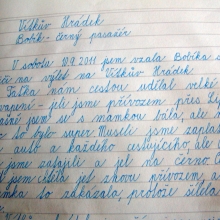 Vítkův Hrádek
Bobík - černý pasažér
V sobotu 10.9.2011 jsem vzala Bobíka s
na výlet na Vítkův Hrádek
Taťka nám cestou udělal velké
jeli jsme přívozem přes
jsem se s mamkou bála, ale
to bylo super. Museli jsme zaplatit
auto a každého cestujícího, ale
jsme zatajili a jel na černo
jsme cestou jet znovu přívozem, a
to zakázala, protože